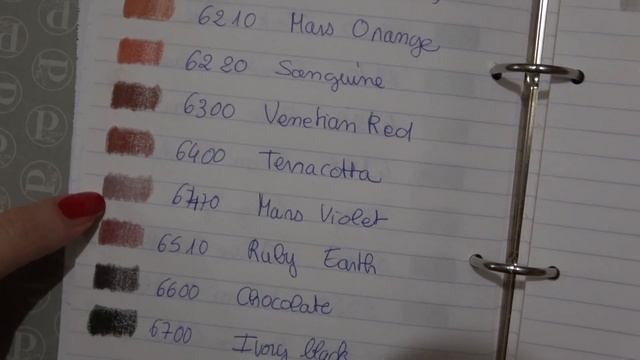 6210 Mars Orange
6220 Sanguine
6300 Venetian Red
6400 Terracotta
6470 Mars Violet
6510 Ruby Earth
6600 Chocolate
6700 Ivory black